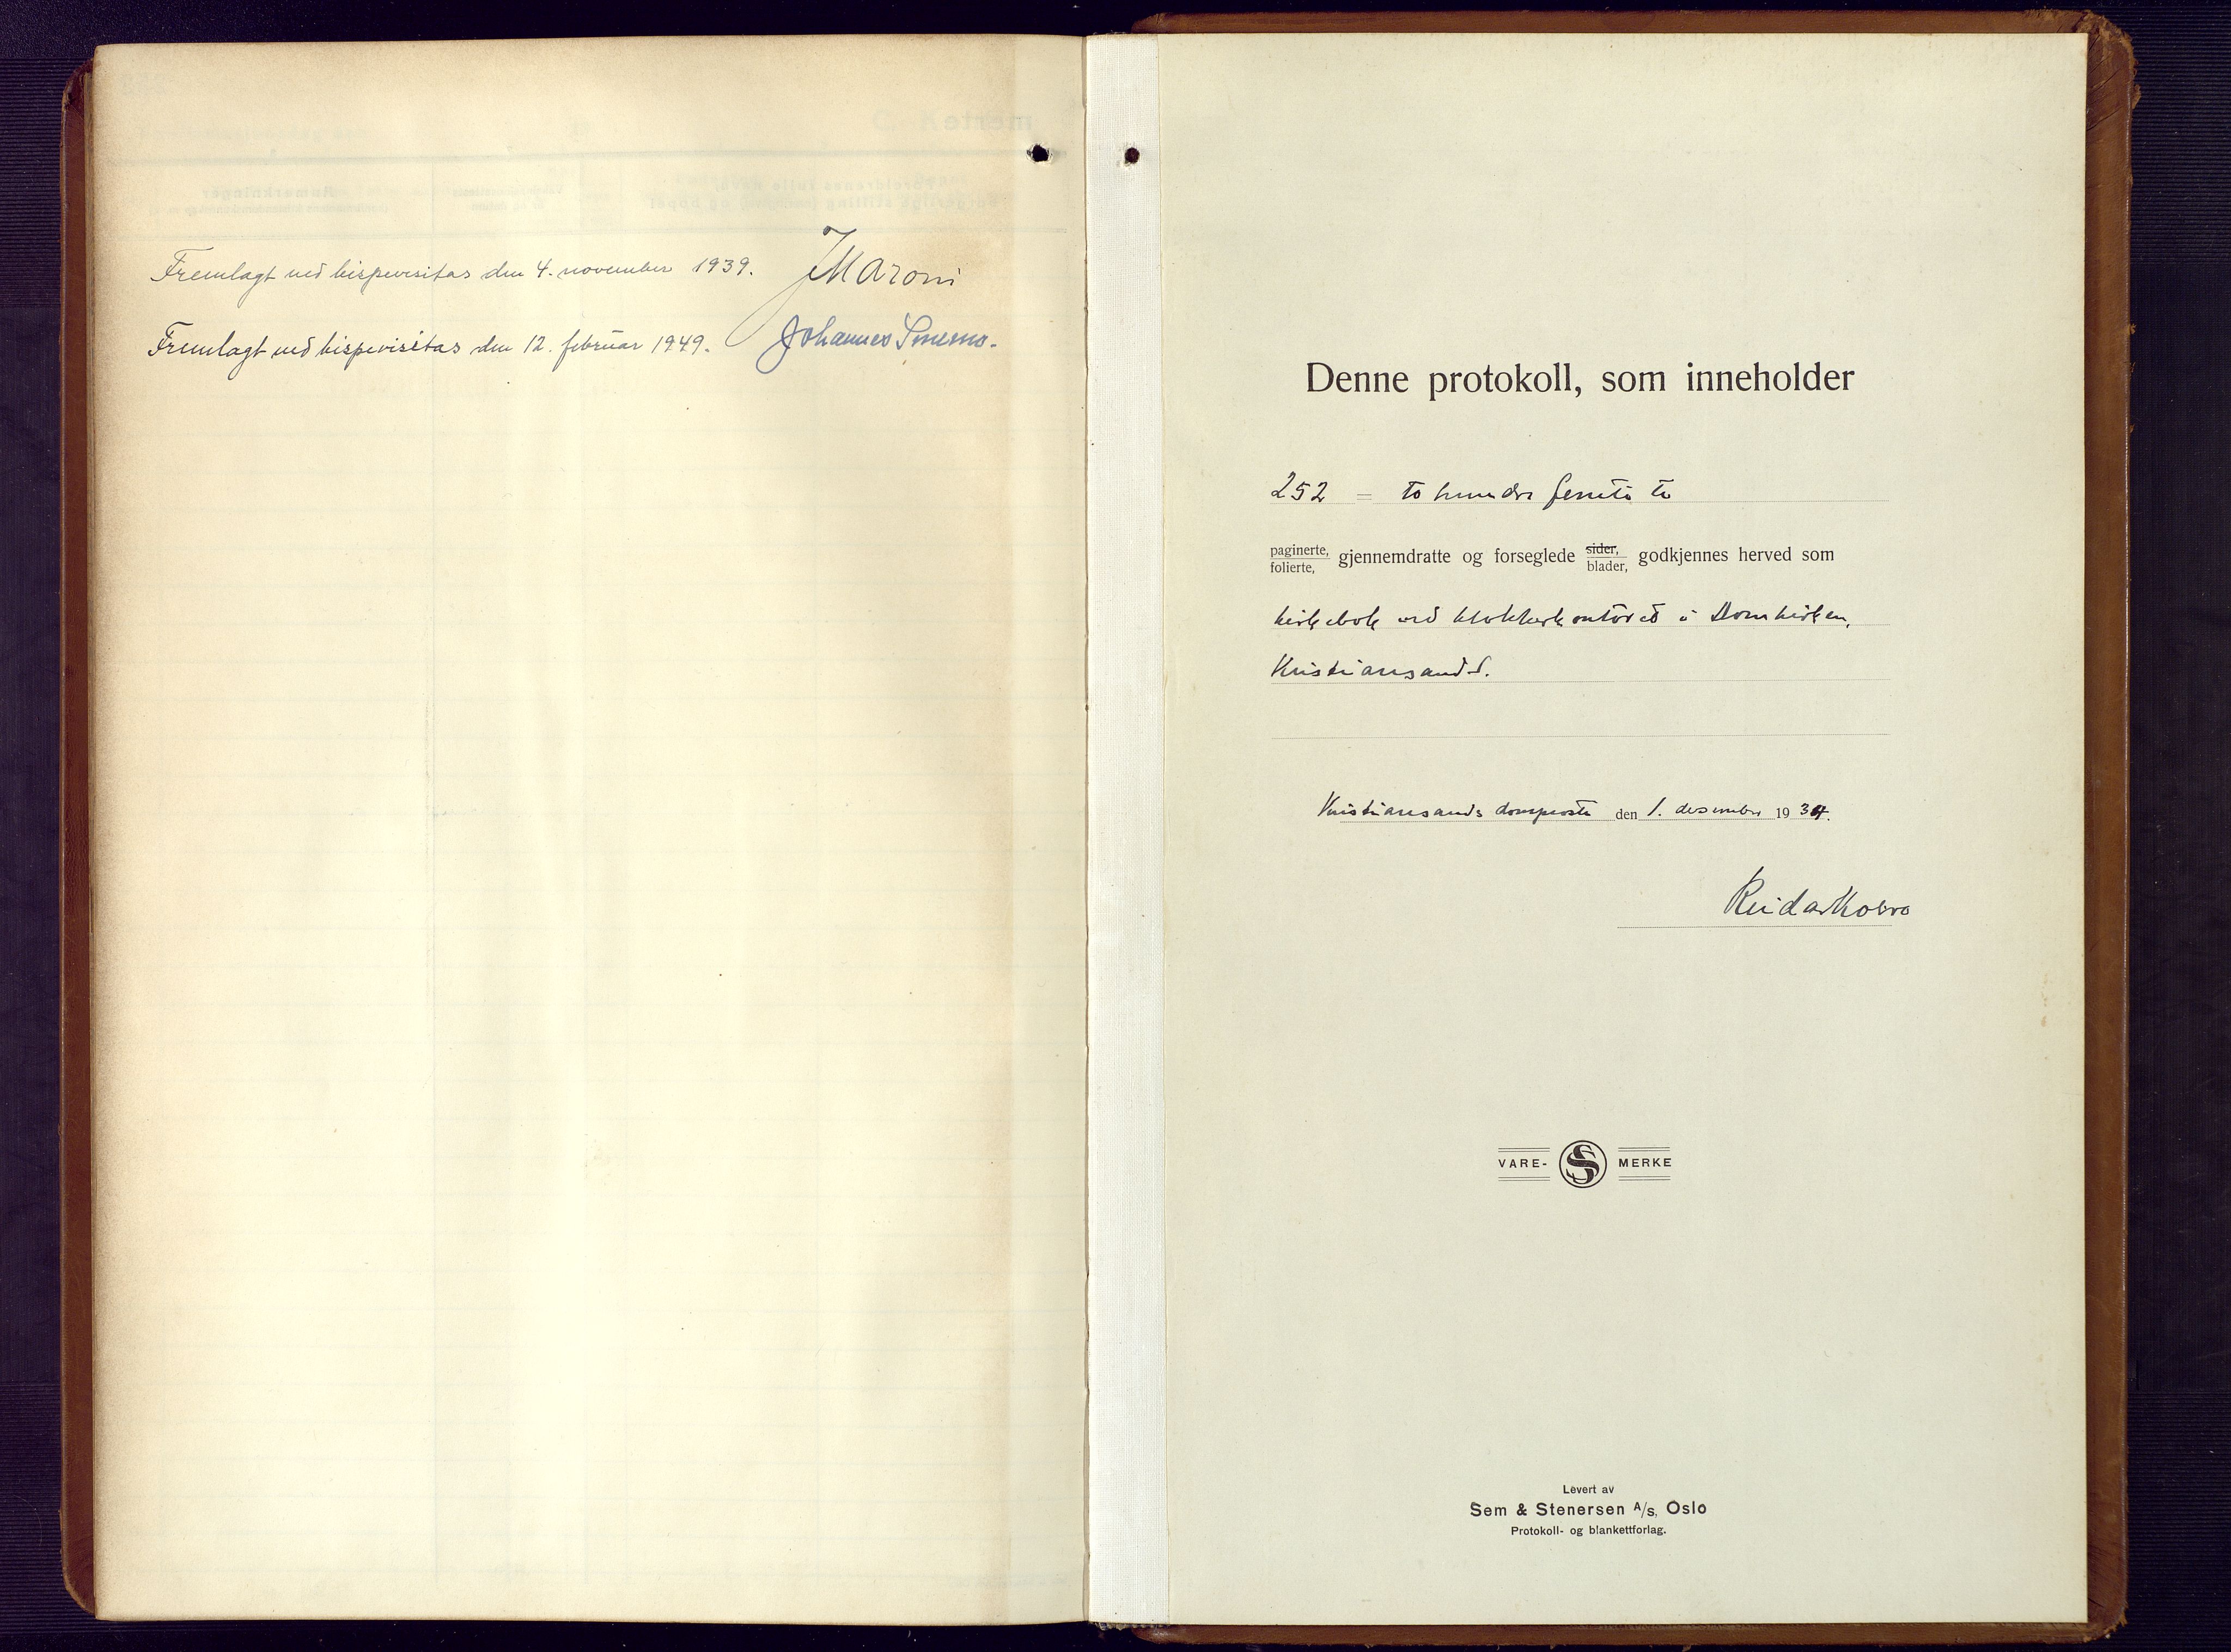 Fremlagt ved bispevisitas den 4. november 1939. JMaroni
Fremlagt ved bispevisitas den 12. februar 1949. Johannes Smemo.
Denne protokoll, som inneholder
252 = to hundre femti to
paginerte, folierte, gjennemdratte og forseglede sider, blader, godkjennes herved som
kirkebok ved klokkerkontoret i Domkirken,
Kristiansand S.
Kristiansands domprosti den 1. desember 1934.
Reidar Kobro
VARE- SS MERKE
Levert av
Sem & Stenersen A/s, Oslo
Protokoll- og blankettforlag.